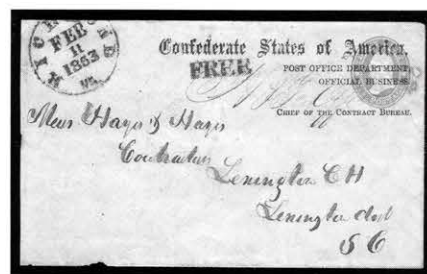 RICHMOND
FEB
11
1863
Va.
Confederate States of America,
FREE
POST OFFICE DEPARTMENT,
OFFICIAL BUSINESS
CHIEF OF THE CONTRACT BUREAU.
Mess Hays & Hays
Contractors
Lexington C H
Lexington dist
S C